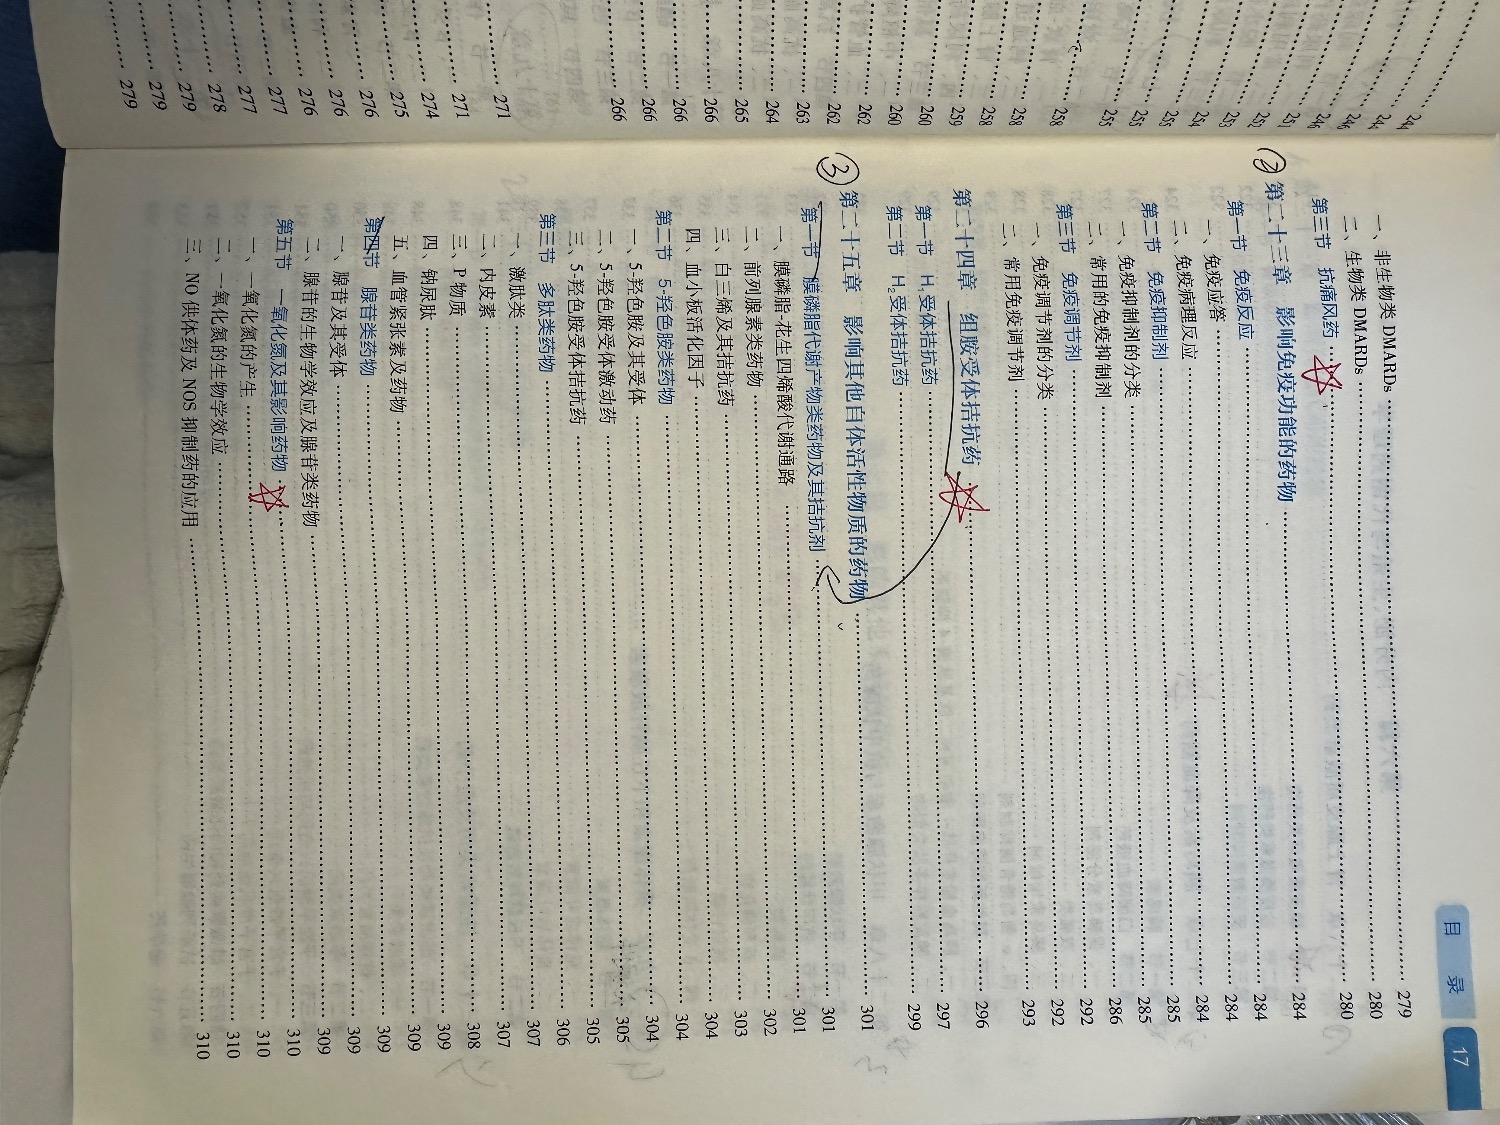 目 录 17
一、非生物类 DMARDs …… 279
二、生物类 DMARDs …… 280
第三节 抗痛风药 …… 280
② 第二十三章 影响免疫功能的药物 …… 284
第一节 免疫反应 …… 284
一、免疫应答 …… 284
二、免疫病理反应 …… 284
第二节 免疫抑制剂 …… 285
一、免疫抑制剂的分类 …… 285
二、常用的免疫抑制剂 …… 286
第三节 免疫调节剂 …… 292
一、免疫调节剂的分类 …… 292
二、常用免疫调节剂 …… 293
第二十四章 组胺受体拮抗药 …… 296
第一节 H₁受体拮抗药 …… 297
第二节 H₂受体拮抗药 …… 299
③ 第二十五章 影响其他自体活性物质的药物 …… 301
第一节 膜磷脂代谢产物类药物及其拮抗剂 …… 301
一、膜磷脂-花生四烯酸代谢通路 …… 301
二、前列腺素类药物 …… 302
三、白三烯及其拮抗药 …… 303
四、血小板活化因子 …… 304
第二节 5-羟色胺类药物 …… 304
一、5-羟色胺及其受体 …… 304
二、5-羟色胺受体激动药 …… 305
三、5-羟色胺受体拮抗药 …… 305
第三节 多肽类药物 …… 306
一、激肽类 …… 307
二、内皮素 …… 307
三、P 物质 …… 308
四、钠尿肽 …… 309
五、血管紧张素及药物 …… 309
第四节 腺苷类药物 …… 309
一、腺苷及其受体 …… 309
二、腺苷的生物学效应及腺苷类药物 …… 309
第五节 一氧化氮及其影响药物 …… 310
一、一氧化氮的产生 …… 310
二、一氧化氮的生物学效应 …… 310
三、NO 供体药及 NOS 抑制药的应用 …… 310
244
244
246
246
251
252
253
254
255
255
255
258
258
258
259
260
260
262
262
263
264
265
266
266
266
266
271
271
274
275
276
276
276
277
277
278
279
279
279